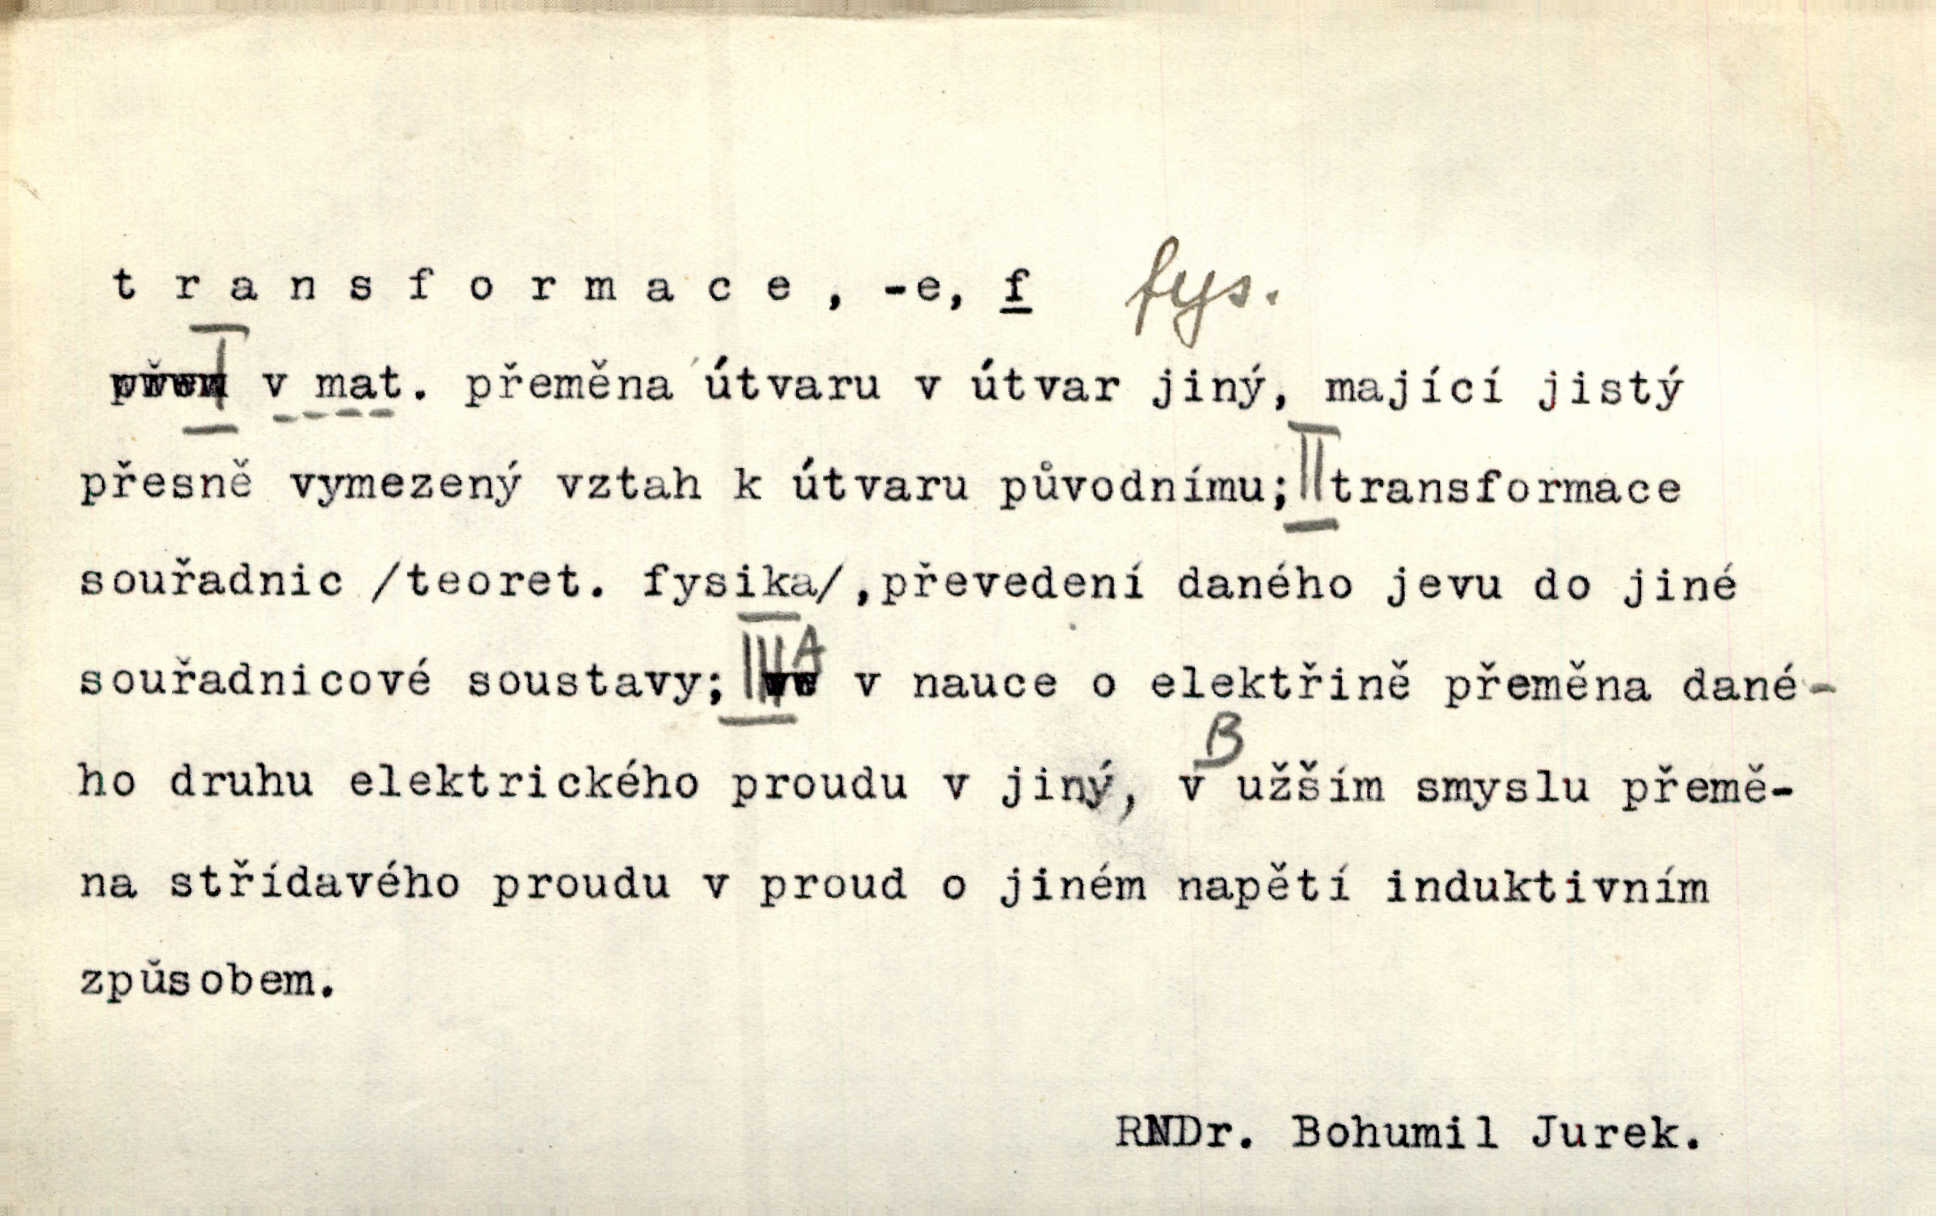 transformace, -e, f fys.
I v mat. přeměna útvaru v útvar jiný, mající jistý
přesně vymezený vztah k útvaru původnímu; II transformace
souřadnic /teoret. fysika/, převedení daného jevu do jiné
souřadnicové soustavy; III A v nauce o elektřině přeměna dané-
ho druhu elektrického proudu v jiný, B v užším smyslu přemě-
na střídavého proudu v proud o jiném napětí induktivním
způsobem.
RNDr. Bohumil Jurek.